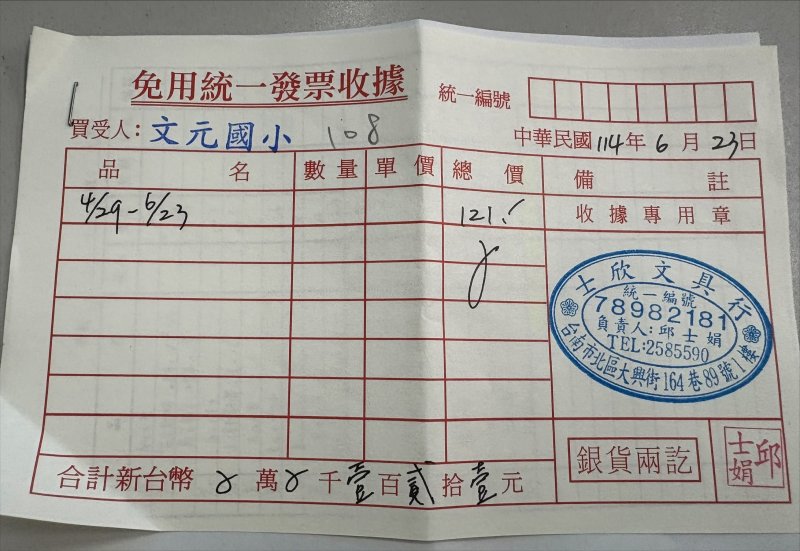 免用統一發票收據
統一編號
買受人：文元國小 108
中華民國114年6月23日
品名 數量 單價 總價 備註
4/29-6/23 121.
收據專用章
士欣文具行
統一編號
78982181
負責人:邱士娟
TEL:2585590
台南市北區大興街164巷89號1樓
銀貨兩訖
邱士娟
合計新台幣 萬 千壹百貳拾壹元